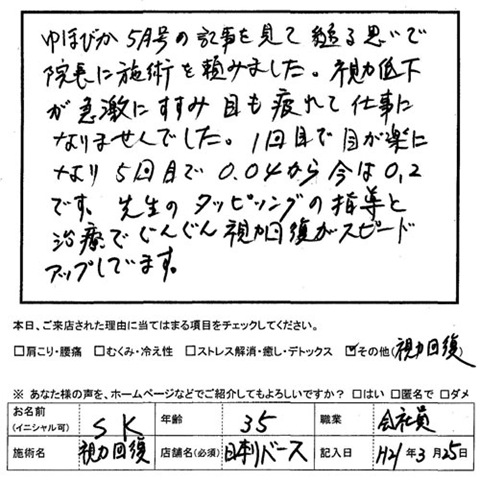 ゆほびか5月号の記事を見て縋る思いで
院長に施術を頼みました。視力低下
が急激にすすみ目も疲れて仕事に
なりませんでした。1回目で目が楽に
なり5回目で0.04から今は0,2
です。先生のタッピングの指導と
治療でぐんぐん視力回復がスピード
アップしてます。
本日、ご来店された理由に当てはまる項目をチェックしてください。
□肩こり・腰痛 □むくみ・冷え性 □ストレス解消・癒し・デトックス ☑その他(視力回復)
※ あなた様の声を、ホームページなどでご紹介してもよろしいですか？ □はい □匿名で □ダメ
お名前(イニシャル可) SK 年齢 35 職業 会社員
施術名 視力回復 店舗名(必須) 日本リバース 記入日 H21年3月25日